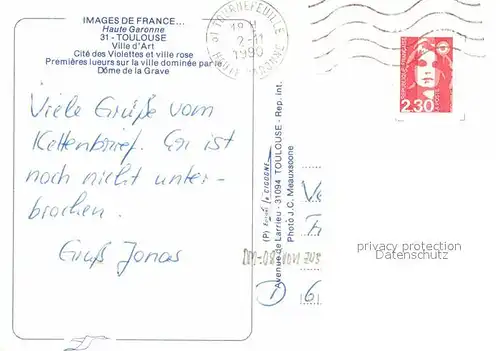 IMAGES DE FRANCE...
Haute Garonne
31 - TOULOUSE
Ville d'Art
Cité des Violettes et ville rose
Premières lueurs sur la ville dominée par le
Dôme de la Grave
Viele Grüße vom
Kettenbrief. Er ist
noch nicht unter-
brochen.
Gruß Jonas
31 TOURNEFEUILLE
2-11
1990
HAUTE GARONNE
2,30
(P)
Avenue de Larrieu - 31094 TOULOUSE - Rep. int.
Photo J.C. Meauxsoone
privacy protection
Datenschutz
D 6